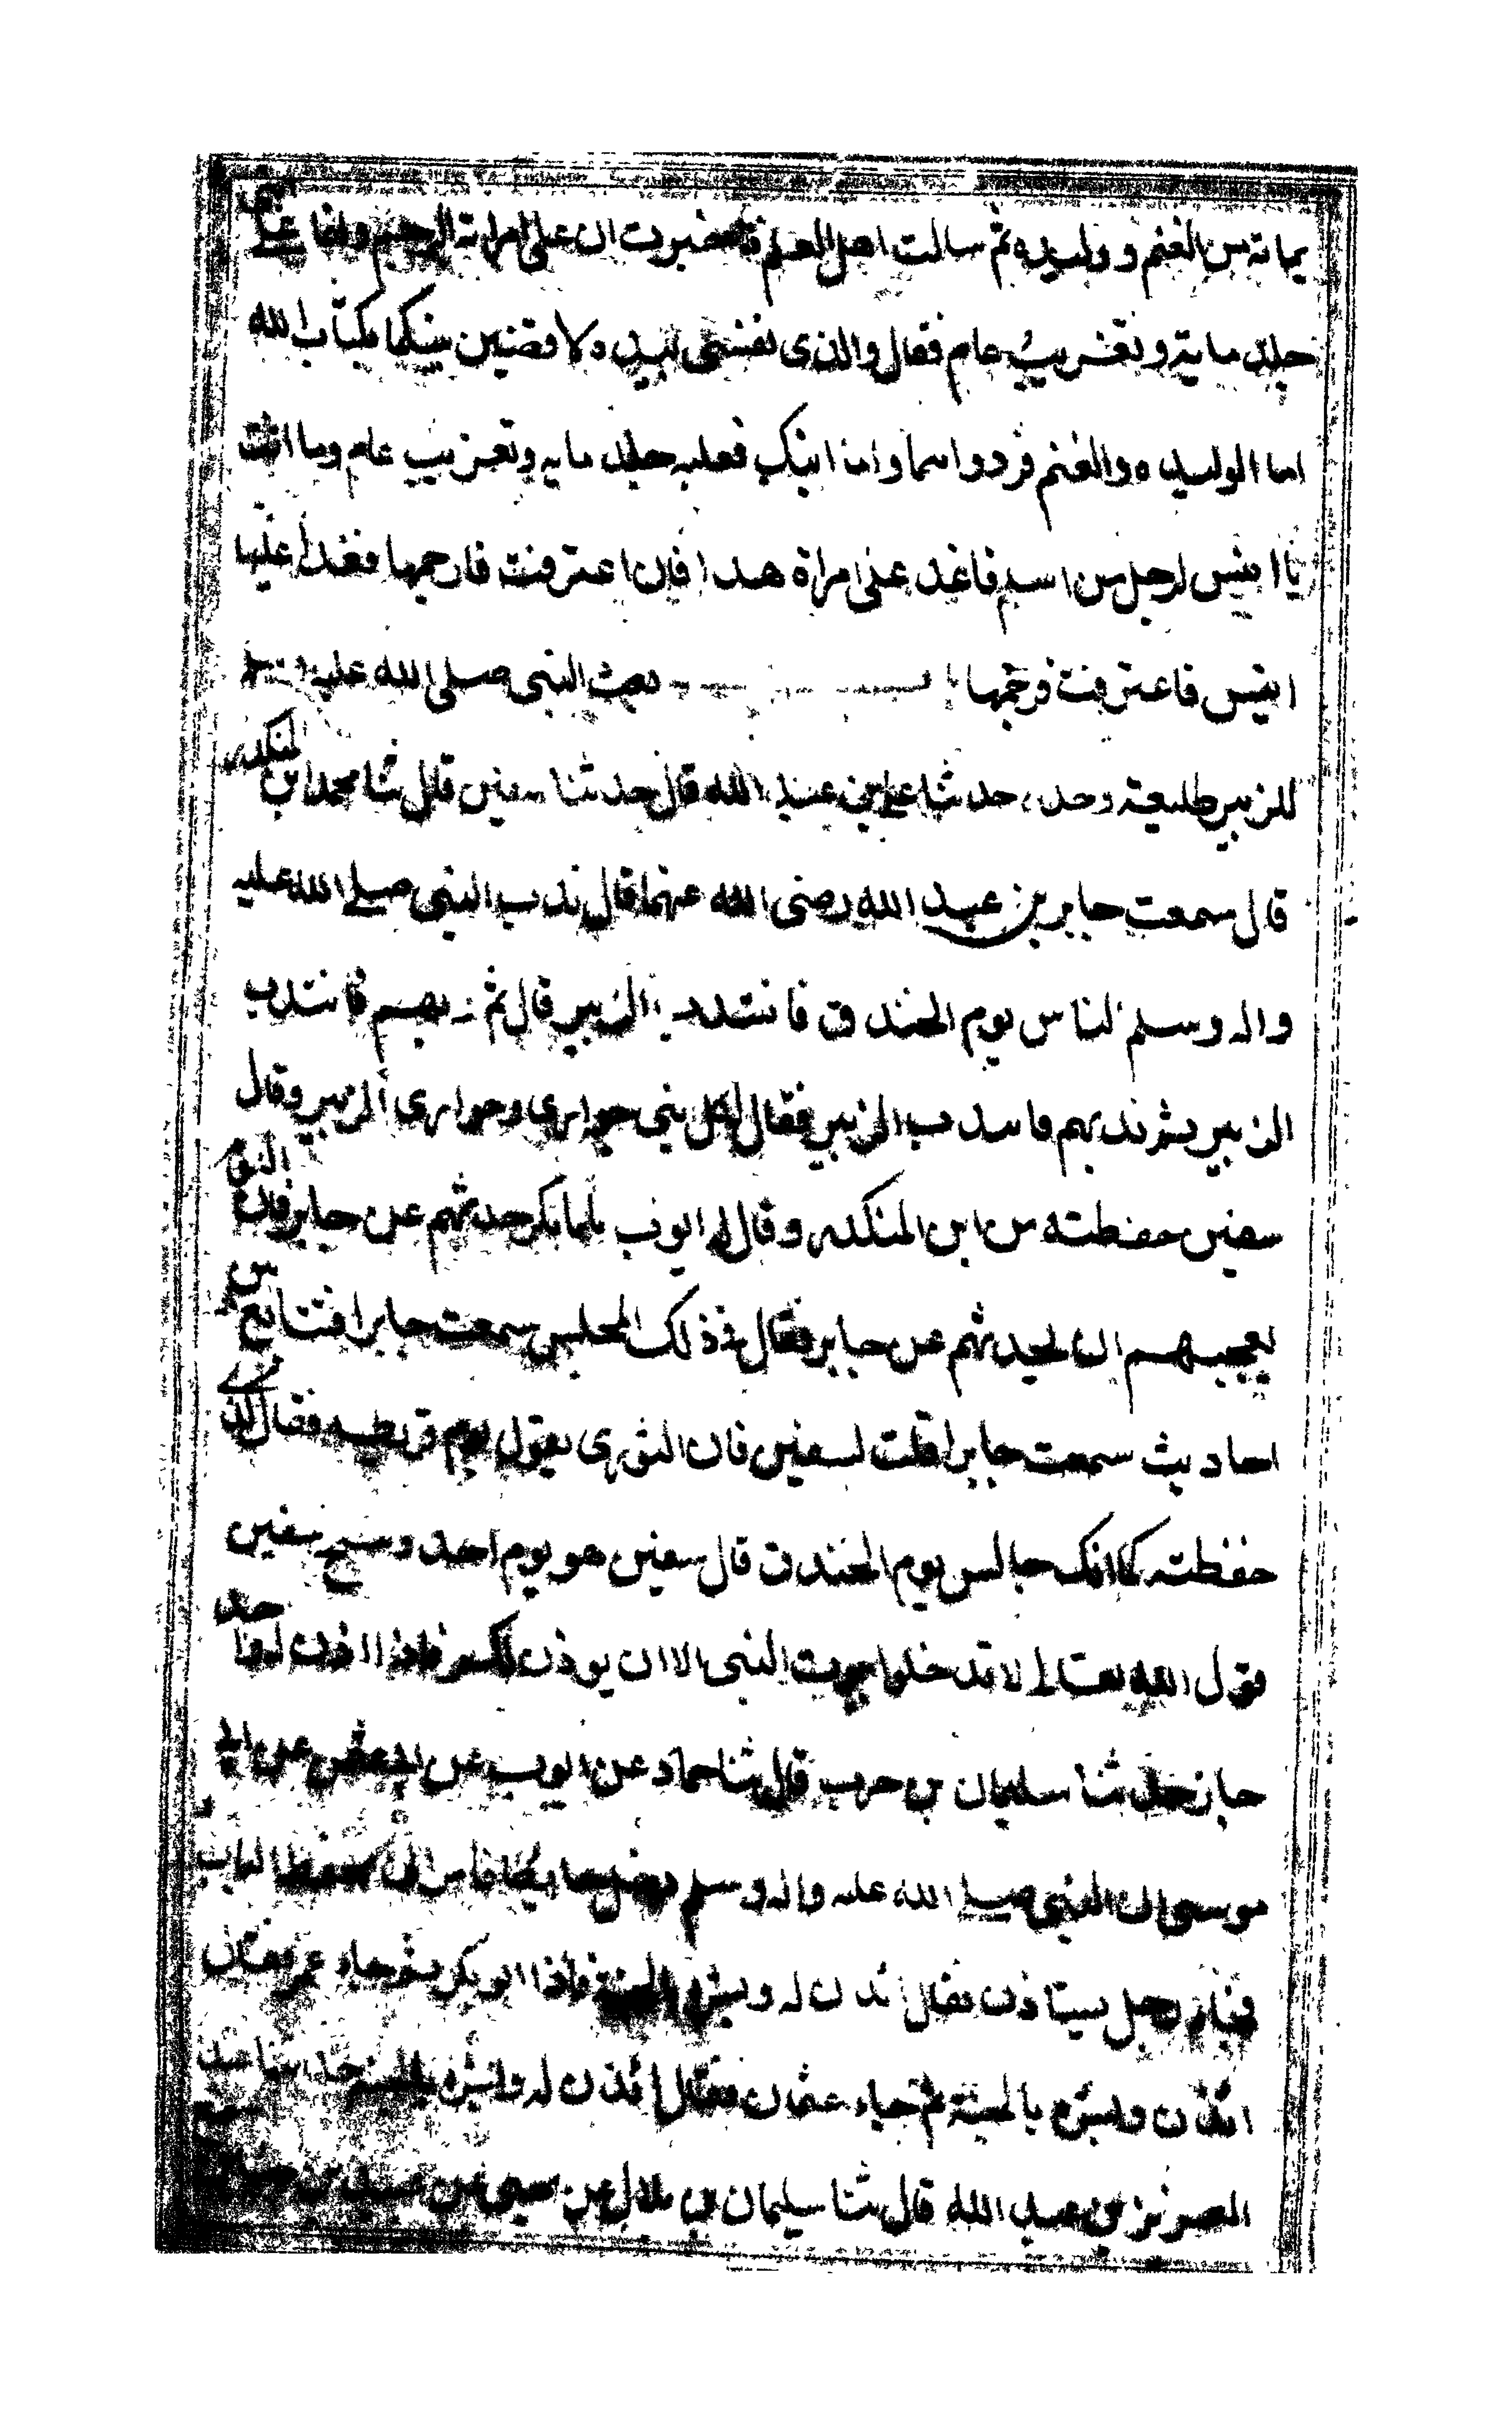 بمائة من الغنم ووليده ثم سالت اهل العلم فاخبرت ان على امراته الرجم وانما على ابنى
جلد ماية وتغريب عام فقال والذي نفسي بيده لاقضين بينكما بكتاب الله
اما الوليده والغنم فردواها واما ابنك فعليه جلد مايه وتغريب عام وما انت
يا انيس لرجل من اسلم فاغد على امراة هذا فان اعترفت فارجمها فغدا عليها
انيس فاعترفت فرجمها باب بعث النبى صلى الله عليه وسلم
للزبير طليعة وحده حدثنا علي بن عبد الله قال حدثنا سفين قال ثنا محمد ابن المنكدر
قال سمعت جابر بن عبد الله رضى الله عنهما قال ندب النبى صلى الله عليه
واله وسلم الناس يوم الخندق فانتدب الزبير قال ثم ندبهم فانتدب
الزبير ثم ندبهم فانتدب الزبير فقال لكل نبى حواري وحواري الزبير وقال
سفين حفظته من ابن المنكدر وقال له ايوب يا ابا بكر حدثهم عن جابر فان القوم
يعجبهم ان تحدثهم عن جابر فقال في ذلك المجلس سمعت جابرا فتتابع بين
احاديث سمعت جابرا قلت لسفين فان الثوري يقول يوم قريظه فقال كذا
حفظته كما انك جالس يوم الخندق قال سفين هو يوم واحد وتبسم سفين
قول الله تعالى لا تدخلوا بيوت النبى الا ان يوذن لكم فاذا اذن له واحد
جاز حدثنا سليمان بن حرب قال ثنا حماد عن ايوب عن ابى عثمن عن ابى
موسى ان النبى صلى الله عليه واله وسلم دخل حايطا فامرنى بحفظ الباب
فجاء رجل يستاذن فقال ائذن له وبشره بالجنة فاذا ابو بكر ثم جاء عمر فقال
ائذن وبشره بالجنة ثم جاء عثمان فقال ائذن له وبشره بالجنة حدثنا عبد
العزيز بن عبد الله قال ثنا سليمان بن بلال عن يحيى عن عبيد بن حنين